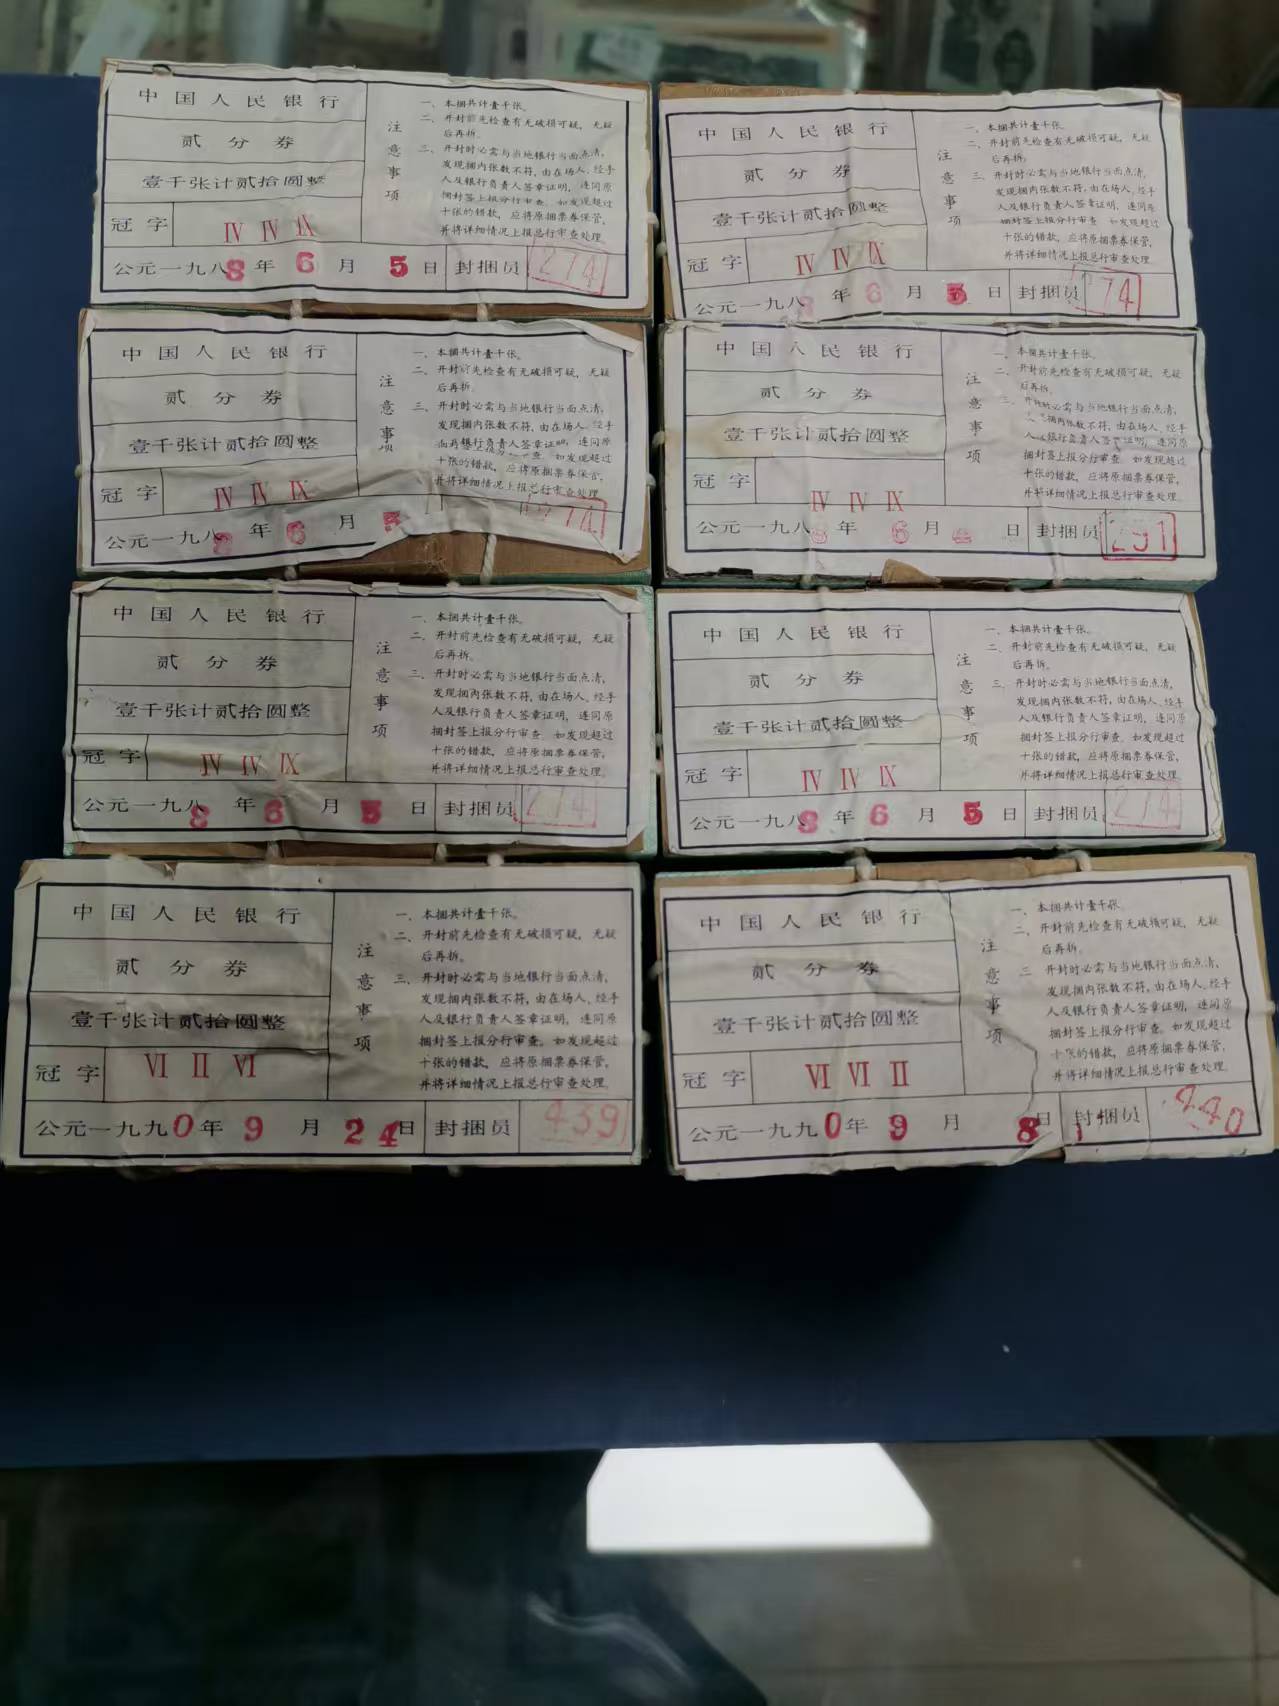 中国人民银行
贰分券
壹千张计贰拾圆整
冠字 Ⅳ Ⅳ Ⅸ
公元一九八8年6月5日 封捆员 274
注意事项
一、本捆共计壹千张。
二、开封前先检查有无破损可疑，无疑
后再拆。
三、开封时必需与当地银行当面点清，
发现捆内张数不符，由在场人、经手
人及银行负责人签章证明，连同原
捆封签上报分行审查。如发现超过
十张的错款，应将原捆票券保管，
并将详细情况上报总行审查处理。
中国人民银行
贰分券
壹千张计贰拾圆整
冠字 Ⅳ Ⅳ Ⅸ
公元一九八 年6月5日 封捆员 74
注意事项
一、本捆共计壹千张。
二、开封前先检查有无破损可疑，无疑
后再拆。
三 开封时必需与当地银行当面点清，
发现捆内张数不符，由在场人、经手
人及银行负责人签章证明，连同原
捆封签上报分行审查 如发现超过
十张的错款，应将原捆票券保管，
并将详细情况上报总行审查处理
中国人民银行
贰分券
壹千张计贰拾圆整
冠字 Ⅳ Ⅳ Ⅸ
公元一九八8年6月5 274
注意事项
一、本捆共计壹千张。
二、开封前先检查有无破损可疑，无疑
后再拆。
三、开封时必需与当地银行当面点清，
发现捆内张数不符，由在场人、经手
银行负责人签章证明，连同原
查 如发现超过
十张的错款，应将原捆票券保管，
并将详细情况上报总行审查处理
中国人民银行
贰分券
壹千张计贰拾圆整
冠字 Ⅳ Ⅳ Ⅸ
公元一九八8年6月 日 封捆员 291
注意事项
一、本捆共计壹千张。
二、开封前先检查有无破损可疑，无疑
后再拆。
三、开封时必需与当地银行当面点清，
捆内张数不符，由在场人、经手
人及银行负责人签章证明，连同原
捆封签上报分行审查 如发现超过
十张的错款，应将原捆票券保管，
并将详细情况上报总行审查处理
中国人民银行
贰分券
壹千张计贰拾圆整
冠字 Ⅳ Ⅳ Ⅸ
公元一九八8年6月5日 封捆员 274
注意事项
一、本捆共计壹千张。
二、开封前先检查有无破损可疑，无疑
后再拆。
三、开封时必需与当地银行当面点清，
发现捆内张数不符，由在场人、经手
人及银行负责人签章证明，连同原
捆封签上报分行审查 如发现超过
十张的错款，应将原捆票券保管，
并将详细情况上报总行审查处理
中国人民银行
贰分券
壹千张计贰拾圆整
冠字 Ⅳ Ⅳ Ⅸ
公元一九八8年6月5日 封捆员 274
注意事项
一、本捆共计壹千张。
二、开封前先检查有无破损可疑，无疑
后再拆。
三、开封时必需与当地银行当面点清，
发现捆内张数不符，由在场人、经手
人及银行负责人签章证明，连同原
捆封签上报分行审查 如发现超过
十张的错款，应将原捆票券保管，
并将详细情况上报总行审查处理
中国人民银行
贰分券
壹千张计贰拾圆整
冠字 Ⅵ Ⅱ Ⅵ
公元一九九0年9月24日 封捆员 439
注意事项
一、本捆共计壹千张。
二、开封前先检查有无破损可疑，无疑
后再拆。
三、开封时必需与当地银行当面点清，
发现捆内张数不符，由在场人、经手
人及银行负责人签章证明，连同原
捆封签上报分行审查。如发现超过
十张的错款，应将原捆票券保管，
并将详细情况上报总行审查处理。
中国人民银行
贰分券
壹千张计贰拾圆整
冠字 Ⅵ Ⅵ Ⅱ
公元一九九0年9月8日 封捆员 440
注意事项
一、本捆共计壹千张。
二、开封前先检查有无破损可疑，无疑
后再拆。
三 开封时必需与当地银行当面点清，
发现捆内张数不符，由在场人、经手
人及银行负责人签章证明，连同原
捆封签上报分行审查。如发现超过
十张的错款，应将原捆票券保管，
并将详细情况上报总行审查处理。